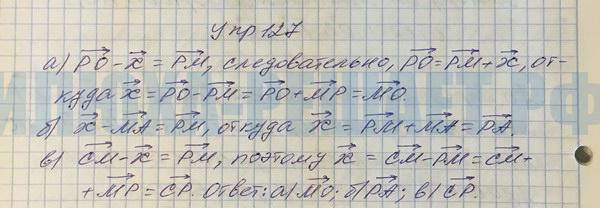 Упр 127
а) PO⃗ - x⃗ = PM⃗, следовательно, PO⃗ = PM⃗ + x⃗, от-
куда x⃗ = PO⃗ - PM⃗ = PO⃗ + MP⃗ = MO⃗.
б) x⃗ - MA⃗ = PM⃗, откуда x⃗ = PM⃗ + MA⃗ = PA⃗.
в) CM⃗ - x⃗ = PM⃗, поэтому x⃗ = CM⃗ - PM⃗ = CM⃗ +
+ MP⃗ = CP⃗. Ответ: а) MO⃗; б) PA⃗; в) CP⃗.